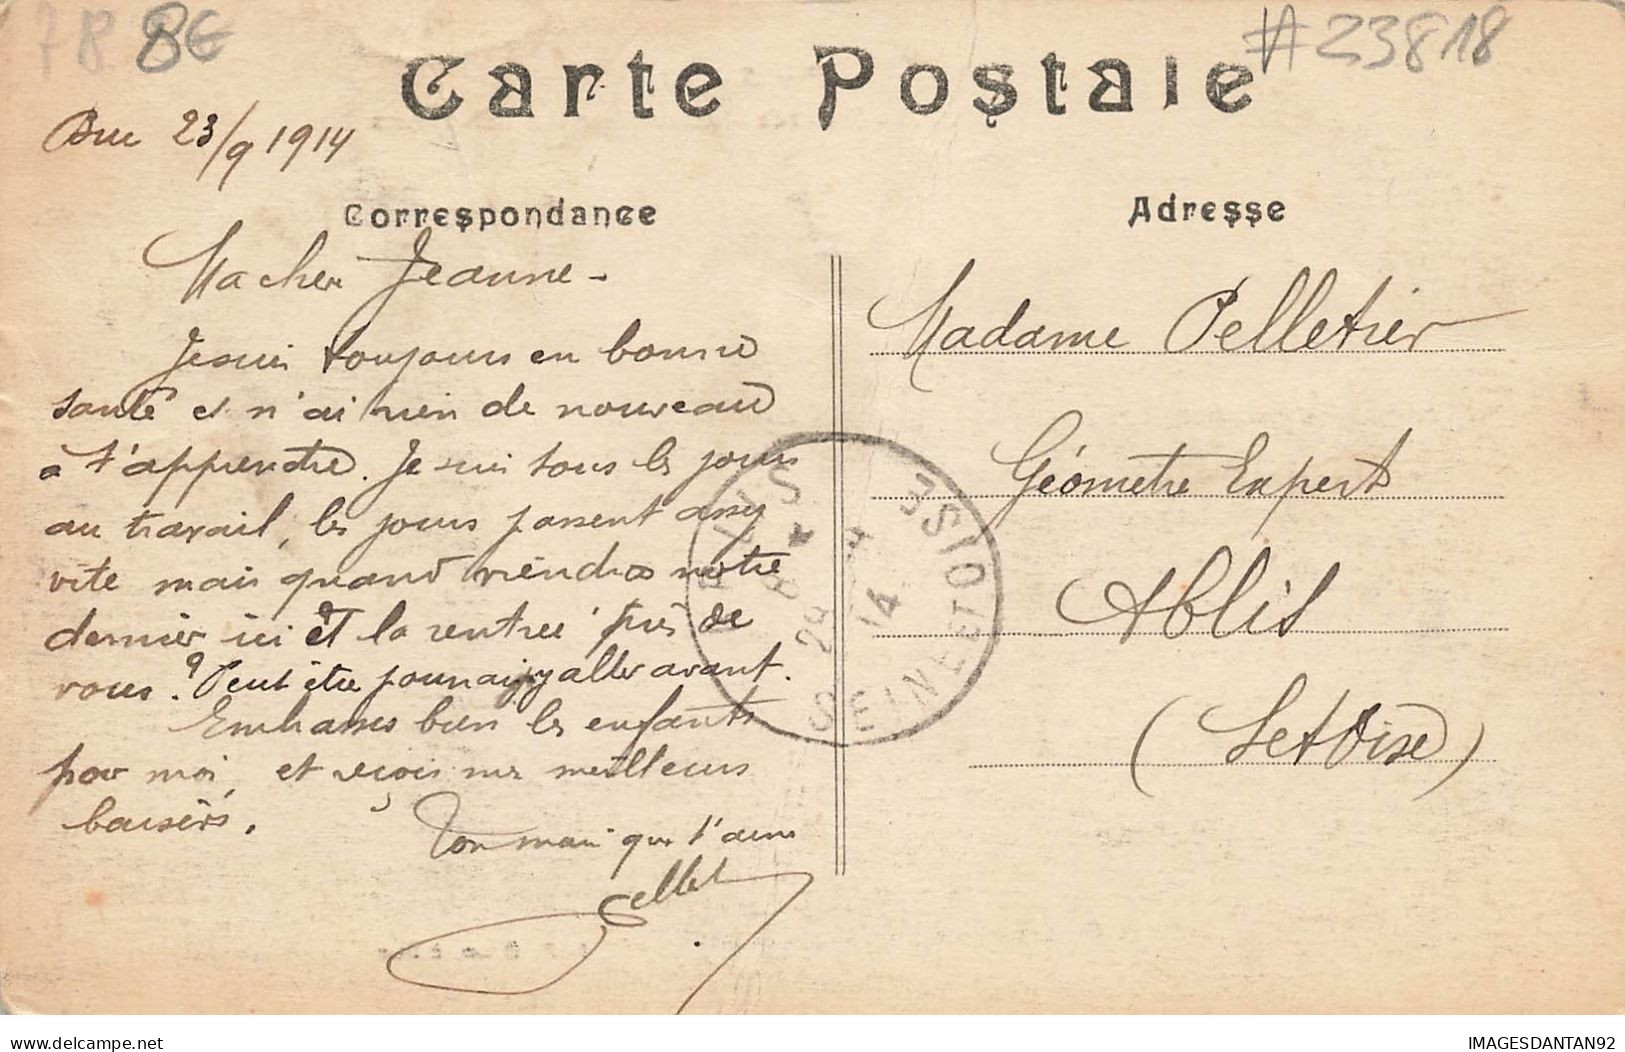 78 8€
#23818
Carte Postale
Buc 23/9 1914
Correspondance
Ma cher Jeanne -
Je suis toujours en bonne
santé et n'ai rien de nouveau
à t'apprendre. Je suis tous les jours
au travail, les jours passent assez
vite mais quand viendra notre
dernier ici et la rentrée près de
vous ? Peut être pourrai j'y aller avant.
Embrasses bien les enfants
pour moi et reçois mes meilleurs
baisers.
Ton mari qui t'aime
Pellet
Adresse
Madame Pelletier
Géomètre Expert
Ablis
(S et Oise)
SEINE ET OISE
14
IMAGESDANTAN92
https://www.delcampe.net